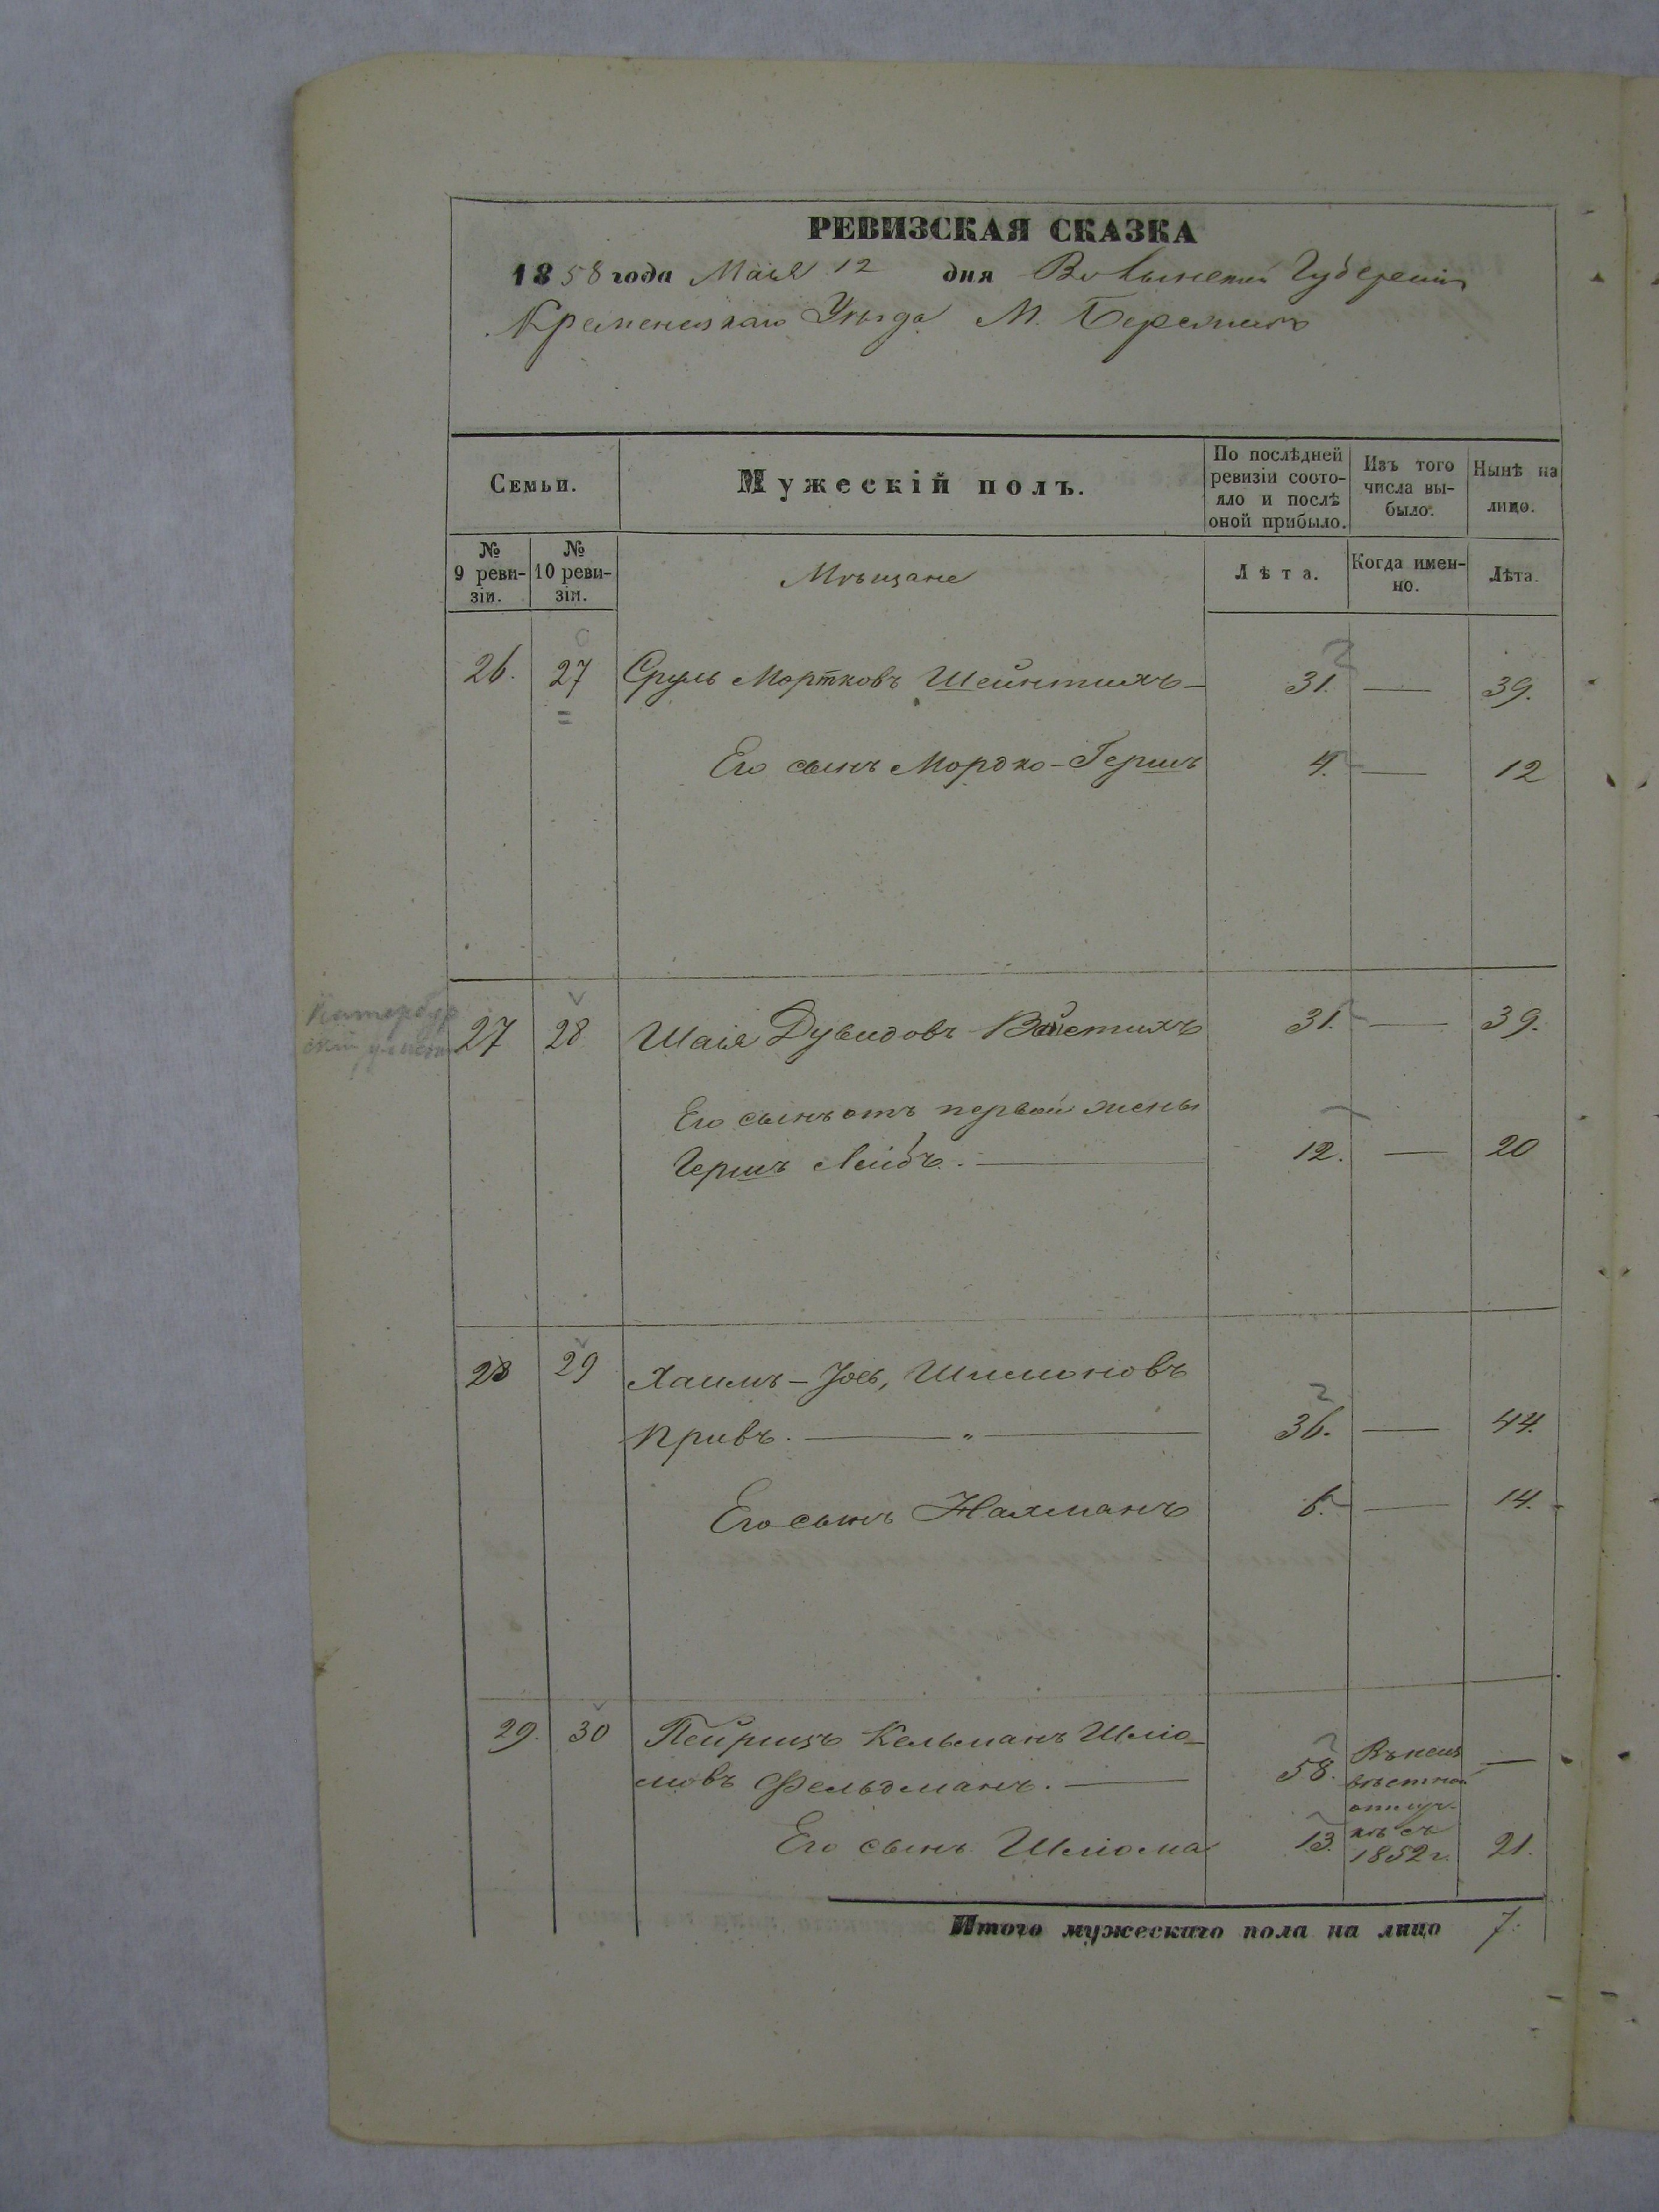 РЕВИЗСКАЯ СКАЗКА
1858 года Маія 12 дня Волынской Губерніи
Кременецкаго Уѣзда М. Бережецъ
Семьи.
Мужескій полъ.
По послѣдней ревизіи состо-
яло и послѣ
оной прибыло.
Изъ того
числа вы-
было.
Нынѣ на
лицо.
№
9 реви-
зіи.
№
10 реви-
зіи.
Мѣщане
Лѣта.
Когда имен-
но.
Лѣта.
26. 27 Сруль Мортковъ Шейнтихъ — 31. — 39.
Его сынъ Мордко-Гершъ 4. — 12
27 28 Шаія Дувидовъ Вайстихъ 31. — 39.
Его сынъ отъ первой жены
Гершъ Лейбъ. — 12. — 20
28 29 Хаимъ-Іось, Шимоновъ
Кривъ. — " — 36. — 44.
Его сынъ Нахманъ 6. — 14.
29. 30 Пейрицъ Кельманъ Шліо-
мовъ Фельдманъ. — 58. Въ неиз
вѣстной
отлуч-
кѣ съ
1852 г. —
Его сынъ Шліома 13. 21.
Итого мужескаго пола на лицо 7.